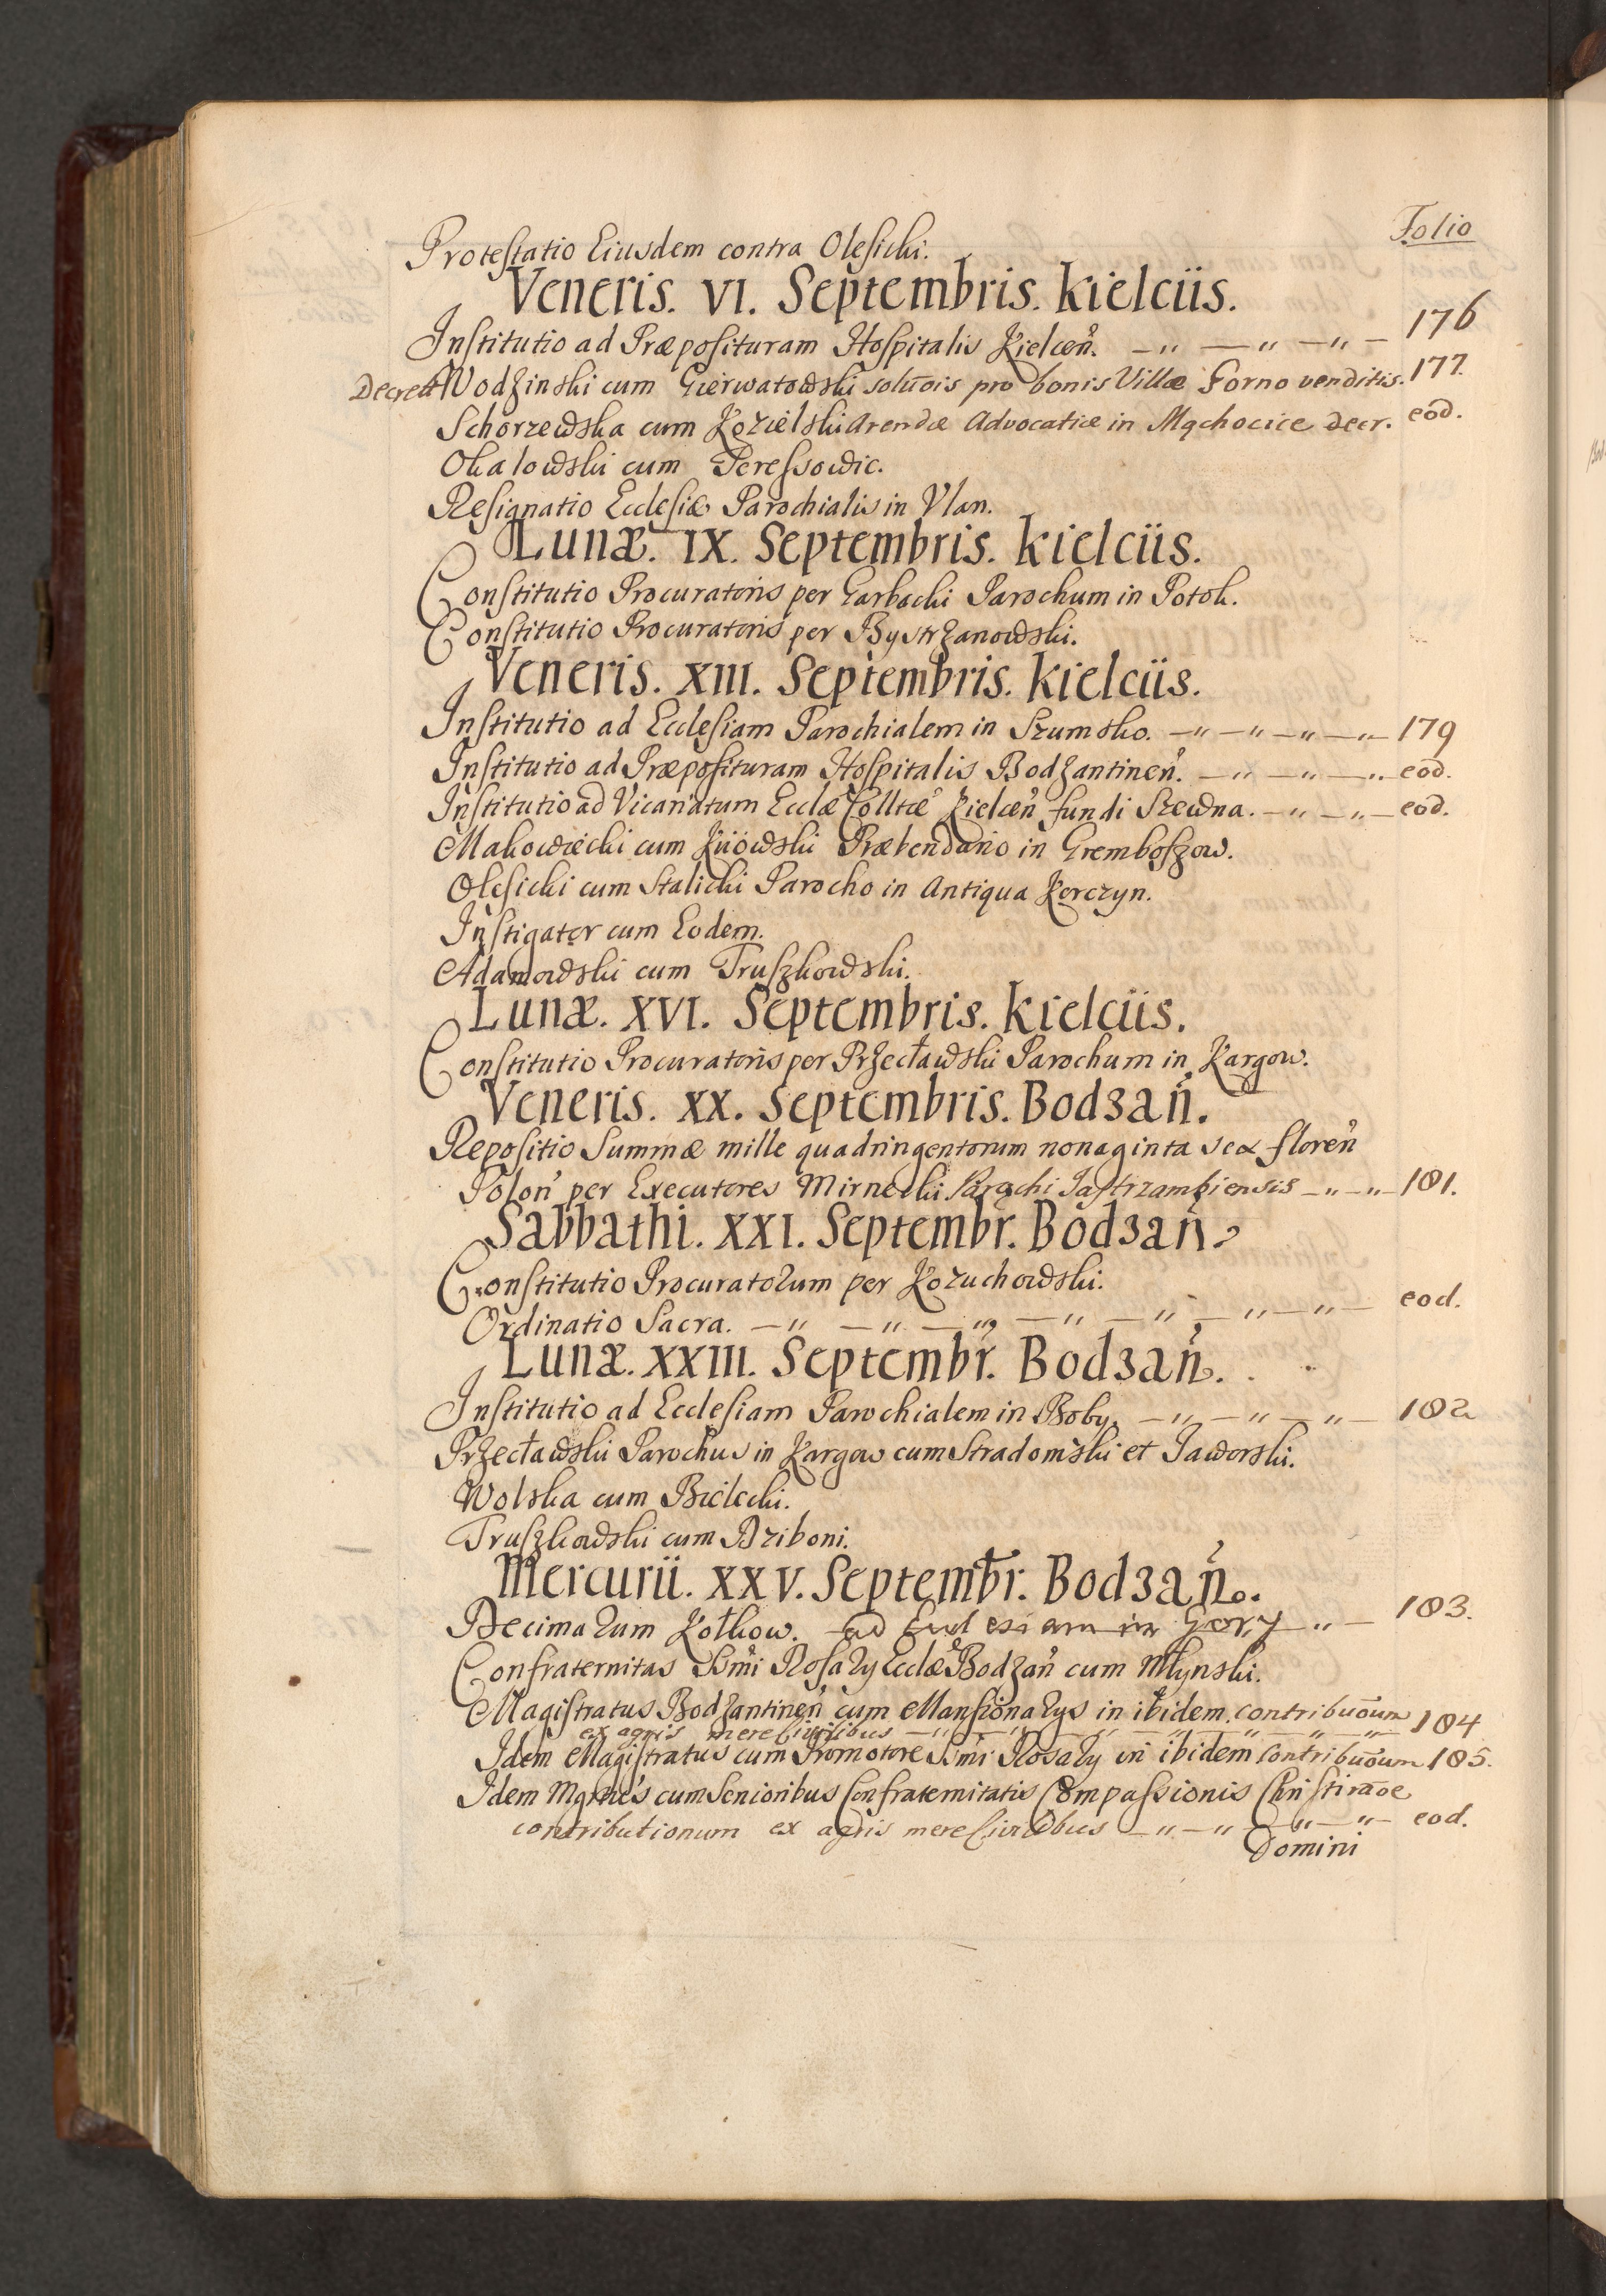 Folio
Protestatio Eiusdem contra Olesicki.
Veneris. VI. Septembris. Kielciis.
Institutio ad Præposituram Hospitalis Kielceñ. — 〃 — 〃 — 〃 — 176
Decret Wodzinski cum Gierwatowski solūois pro bonis Villæ Forno venditis. 177.
Schorzewska cum Kozielski Arendæ Advocatiæ in Mąchocice decr. eod.
Okalowski cum Peressowic.
Resignatio Ecclesiæ Parochialis in Vlan.
Lunæ. IX. Septembris. Kielciis.
Constitutio Procuratoris per Garbacki Parochum in Potok.
Constitutio Procuratoris per Bystrzanowski.
Veneris. XIII. Septembris. Kielciis.
Institutio ad Ecclesiam Parochialem in Szumsko. — 〃 — 〃 — 〃 — 〃 — 179
Institutio ad Præposituram Hospitalis Bodzantineñ. — 〃 — 〃 — 〃 eod.
Institutio ad Vicariatum Ecclæ Colltæ Kielceñ fundi Szewna. — 〃 — 〃 — eod.
Makowiecki cum Kiiowski Præbendario in Gremboszow.
Olesicki cum Stalicki Parocho in Antiqua Korczyn.
Instigator cum Eodem.
Adamowski cum Truszkowski.
Lunæ. XVI. Septembris. Kielciis.
Constitutio Procuratoris per Przecławski Parochum in Kargow.
Veneris. XX. Septembris. Bodzań.
Repositio Summæ mille quadringentorum nonaginta sex floreñ
Poloñ per Executores Mirnecki Parochi Jastrzambiensis — 〃 — 〃 — 181.
Sabbathi. XXI. Septembr. Bodzań.
Constitutio Procuratorum per Kozuchowski.
Ordinatio Sacra. — 〃 — 〃 — 〃 — 〃 — 〃 — 〃 — 〃 — eod.
Lunæ. XXIII. Septembr. Bodzań.
Institutio ad Ecclesiam Parochialem in Boby. — 〃 — 〃 — 〃 — 182
Przecławski Parochus in Kargow cum Stradomski et Jaworski.
Wolska cum Bielecki.
Truszkowski cum Briboni.
Mercurii. XXV. Septembr. Bodzań.
Decimarum Kotkow. ad Ecclesiam in Gory 〃 — 183.
Confraternitas SSmi Rosary Ecclæ Bodzañ cum Młynski.
Magistratus Bodzantineñ cum Mansionarys in ibidem. contribuōum
ex agris mere Civilibus — 〃 — 〃 — 〃 — 〃 — 〃 — 〃 — 184
Idem Magistratus cum Promotore SSmi Rosary in ibidem contribuōum 185.
Idem Mgrtus cum Senioribus Confraternitatis Compassionis Christi
contributionum ex agris mere Civilibus — 〃 — 〃 — 〃 — 〃 — eod.
Domini